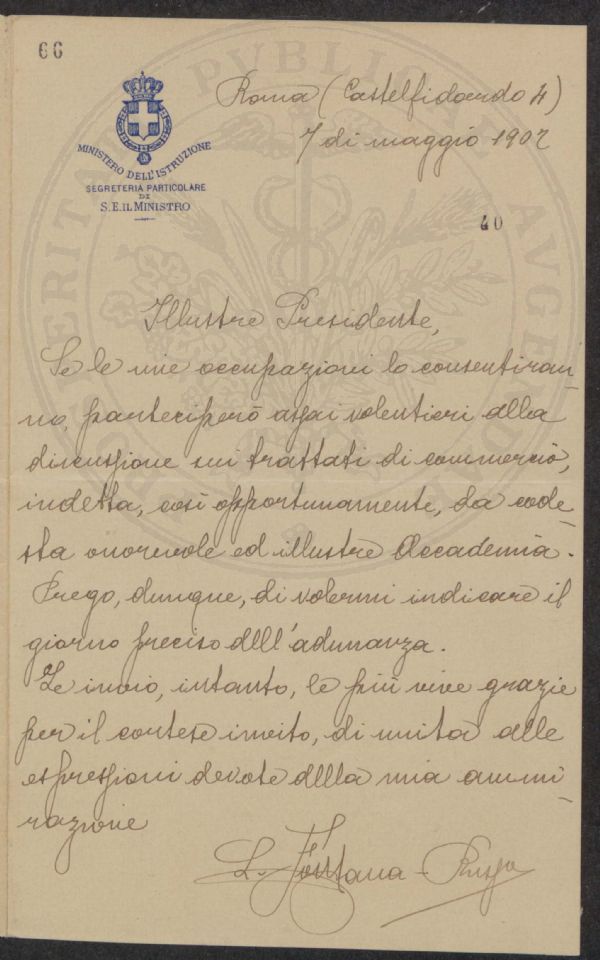 66
Roma (Castelfidardo 4)
7 di maggio 1902
MINISTERO DELL'ISTRUZIONE
SEGRETERIA PARTICOLARE
DI
S.E. IL MINISTRO
40
Illustre Presidente,
Se le mie occupazioni lo consentiran-
no, parteciperò assai volentieri alla
discussione sui trattati di commercio,
indetta, così opportunamente, da code-
sta onorevole ed illustre Accademia.
Prego, dunque, di volermi indicare il
giorno preciso dell'adunanza.
Le invio, intanto, le più vive grazie
per il cortese invito, di unità alle
espressioni devote della mia ammi-
razione
L. Fontana-Russo
PROSPERITATI PUBLICAE AUGENDAE